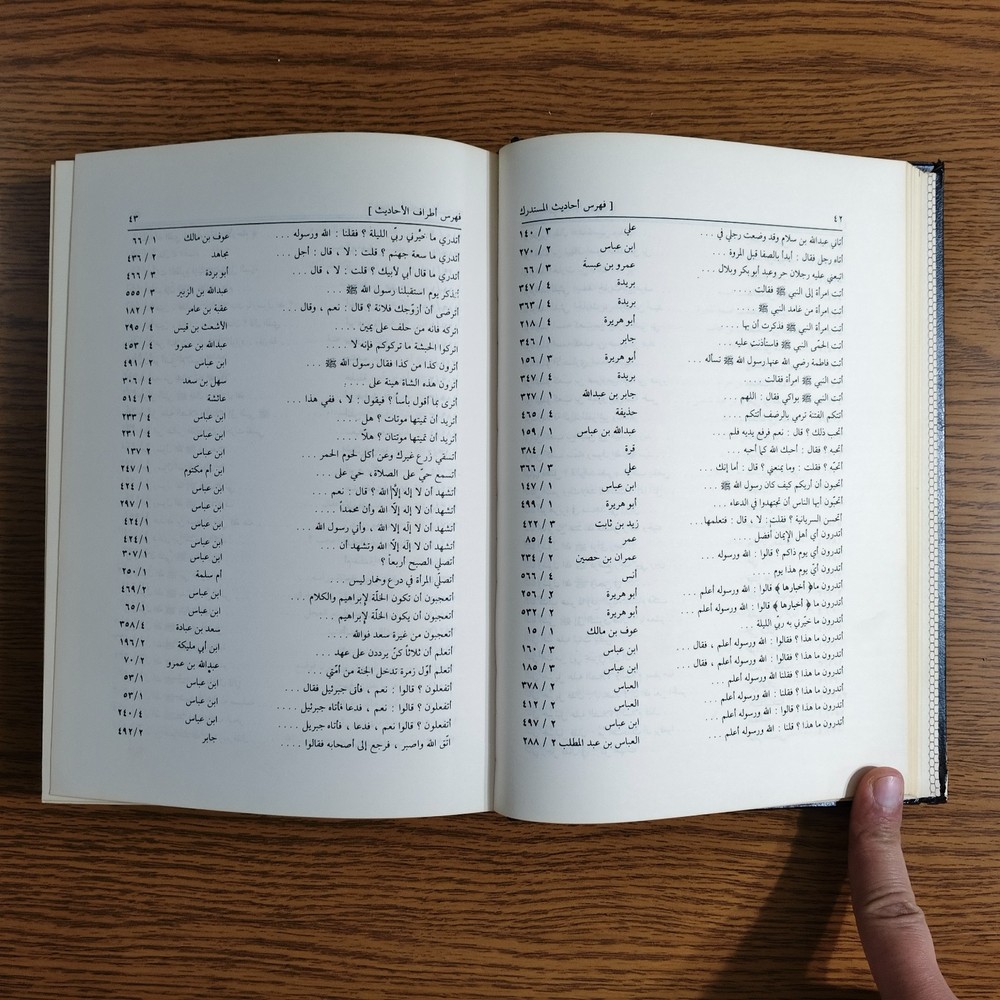 ٤٢ [ فهرس أحاديث المستدرك
أتاني عبدالله بن سلام وقد وضعت رجلي في ... علي ٣ / ١٤٠
أتاه رجل فقال : أبدأ بالصفا قبل المروة ... ابن عباس ٢ / ٢٧٠
اتبعني عليه رجلان حر وعبد أبو بكر وبلال ... عمرو بن عبسة ٣ / ٦٦
أتت امرأة إلى النبي ﷺ فقالت .... بريدة ٤ / ٣٤٧
أتت امرأة من غامد النبي ﷺ .... بريدة ٤ / ٣٦٣
أتت امرأة النبي ﷺ فذكرت أن بها .... أبو هريرة ٤ / ٢١٨
أتت الحمّى النبي ﷺ فاستأذنت عليه ... جابر ١ / ٣٤٦
أتت فاطمة رضي الله عنها رسول الله ﷺ تسأله ... أبو هريرة ٣ / ١٥٦
أتت النبي ﷺ امرأة فقالت .... بريدة ٤ / ٣٤٧
أتت النبي ﷺ بواكي فقال : اللهم ... جابر بن عبدالله ١ / ٣٢٧
أتتكم الفتنة ترمي بالرضف أتتكم .... حذيفة ٤ / ٤٦٥
أتحب ذلك ؟ قال : نعم فرفع يديه فلم ... عبدالله بن عباس ١ / ١٥٩
أتحبه ؟ فقال : أحبك الله كما أحبه ... قرة ١ / ٣٨٤
أتحبّه ؟ فقلت : وما يمنعني ؟ قال : أما إنك ... علي ٣ / ٣٦٦
أتحبون أن أريكم كيف كان رسول الله ﷺ ... ابن عباس ١ / ١٤٧
أتحبّون أيها الناس أن تجتهدوا في الدعاء ... أبو هريرة ١ / ٤٩٩
أتحسن السريانية ؟ فقلت : لا ، قال : فتعلمها... زيد بن ثابت ٣ / ٤٢٢
أتدرون أي أهل الإيمان أفضل .... عمر ٤ / ٨٥
أتدرون أي يوم ذاكم ؟ قالوا : الله ورسوله ... عمران بن حصين ٢ / ٢٣٤
أتدرون أيّ يوم هذا يوم .... أنس ٤ / ٥٦٦
أتدرون ما﴿ أخبارها ﴾ قالوا : الله ورسوله أعلم ... أبو هريرة ٢ / ٢٥٦
أتدرون ما ﴿ أخبارها ﴾ قالوا : الله ورسوله أعلم ... أبو هريرة ٢ / ٥٣٢
أتدرون ما خيّرني به ربّي الليلة ... عوف بن مالك ١ / ١٥
أتدرون ما هذا ؟ قالوا : الله ورسوله أعلم ، فقال ... ابن عباس ٣ / ١٦٠
أتدرون ما هذا ؟ قالوا : الله ورسوله أعلم ، فقال ... ابن عباس ٣ / ١٨٥
أتدرون ما هذا ؟ فقلنا الله ورسوله أعلم ... العباس ٢ / ٣٧٨
أتدرون ما هذا ؟ فقلنا : الله ورسوله أعلم ... العباس ٢ / ٤١٢
أتدرون ما هذا ؟ قالوا : الله ورسوله أعلم ... ابن عباس ٢ / ٤٩٧
أتدرون ما هذا ؟ قلنا : الله ورسوله أعلم ... العباس بن عبد المطلب ٢ / ٢٨٨
فهرس أطراف الأحاديث ] ٤٣
أتدري ما خيّرني ربّي الليلة ؟ فقلنا : الله ورسوله ... عوف بن مالك ١ / ٦٦
أتدري ما سعة جهنم ؟ قلت : لا ، قال : أجل ... مجاهد ٢ / ٤٣٦
أتدري ما قال أبي لأبيك ؟ قلت : لا ، قال ... أبو بردة ٣ / ٤٦٦
أتذكر يوم استقبلنا رسول الله ﷺ ... عبدالله بن الزبير ٣ / ٥٥٥
أترضى أن أزوّجك فلانة ؟ قال : نعم ، وقال ... عقبة بن عامر ٢ / ١٨٢
اتركه فانه من حلف على يمين .... الأشعث بن قيس ٤ / ٢٩٥
اتركوا الحبشة ما تركوكم فإنه لا .... عبدالله بن عمرو ٤ / ٤٥٣
أترون كذا من كذا فقال رسول الله ﷺ ... ابن عباس ٢ / ٤٩١
أترون هذه الشاة هينة على .... سهل بن سعد ٤ / ٣٠٦
أترى بما أقول بأساً ؟ فيقول : لا ، ففي هذا ... عائشة ٢ / ٥١٤
أتريد أن تميتها موتات ؟ هل .... ابن عباس ٤ / ٢٣٣
أتريد أن تميتها موتتان ؟ هلّا .... ابن عباس ٤ / ٢٣١
أتسقي زرع غيرك وعن أكل لحوم الحمر ... ابن عباس ٢ ١٣٧
أتسمع حيّ على الصلاة ، حي على ... ابن أم مكتوم ١ / ٢٤٧
أتشهد أن لا إله إلّا الله ؟ قال : نعم ... ابن عباس ١ / ٤٢٤
أتشهد أن لا إله إلّا الله وأن محمداً ... ابن عباس ١ / ٢٩٧
أتشهد أن لا إله إلّا الله ، وأني رسول الله ... ابن عباس ١/ ٤٢٤
أتشهد أن لا إله إلّا الله وتشهد أن ... ابن عباس ١/ ٤٢٤
أتصلي الصبح أربعاً ؟ ابن عباس ١/ ٣٠٧
أتصلّي المرأة في درع وخمار ليس ... أم سلمة ١/ ٢٥٠
أتعجبون أن تكون الخلّة لإبراهيم والكلام ... ابن عباس ٢/ ٤٦٩
أتعجبون أن يكون الخلّة لإبراهيم ... ابن عباس ١/ ٦٥
أتعجبون من غيرة سعد فوالله .... سعد بن عبادة ٤/ ٣٥٨
أتعلم أن ثلاثاً كنّ يرددن على عهد ... ابن أبي مليكة ٢/ ١٩٦
أتعلم أوّل زمرة تدخل الجنة من أمّتي ... عبدالله بن عمرو ٢/ ٧٠
أتفعلون ؟ قالوا : نعم ، فأتى جبرئيل فقال ... ابن عباس ١/ ٥٣
أتفعلون ؟ قالوا : نعم ، فدعا فأتاه جبرئيل .... ابن عباس ١/ ٥٣
أتفعلون ؟ قالوا نعم ، فدعا ، فأتاه جبريل .... ابن عباس ٤/ ٢٤٠
اتّق الله واصبر ، فرجع إلى أصحابه فقالوا .... جابر ٢/ ٤٩٢